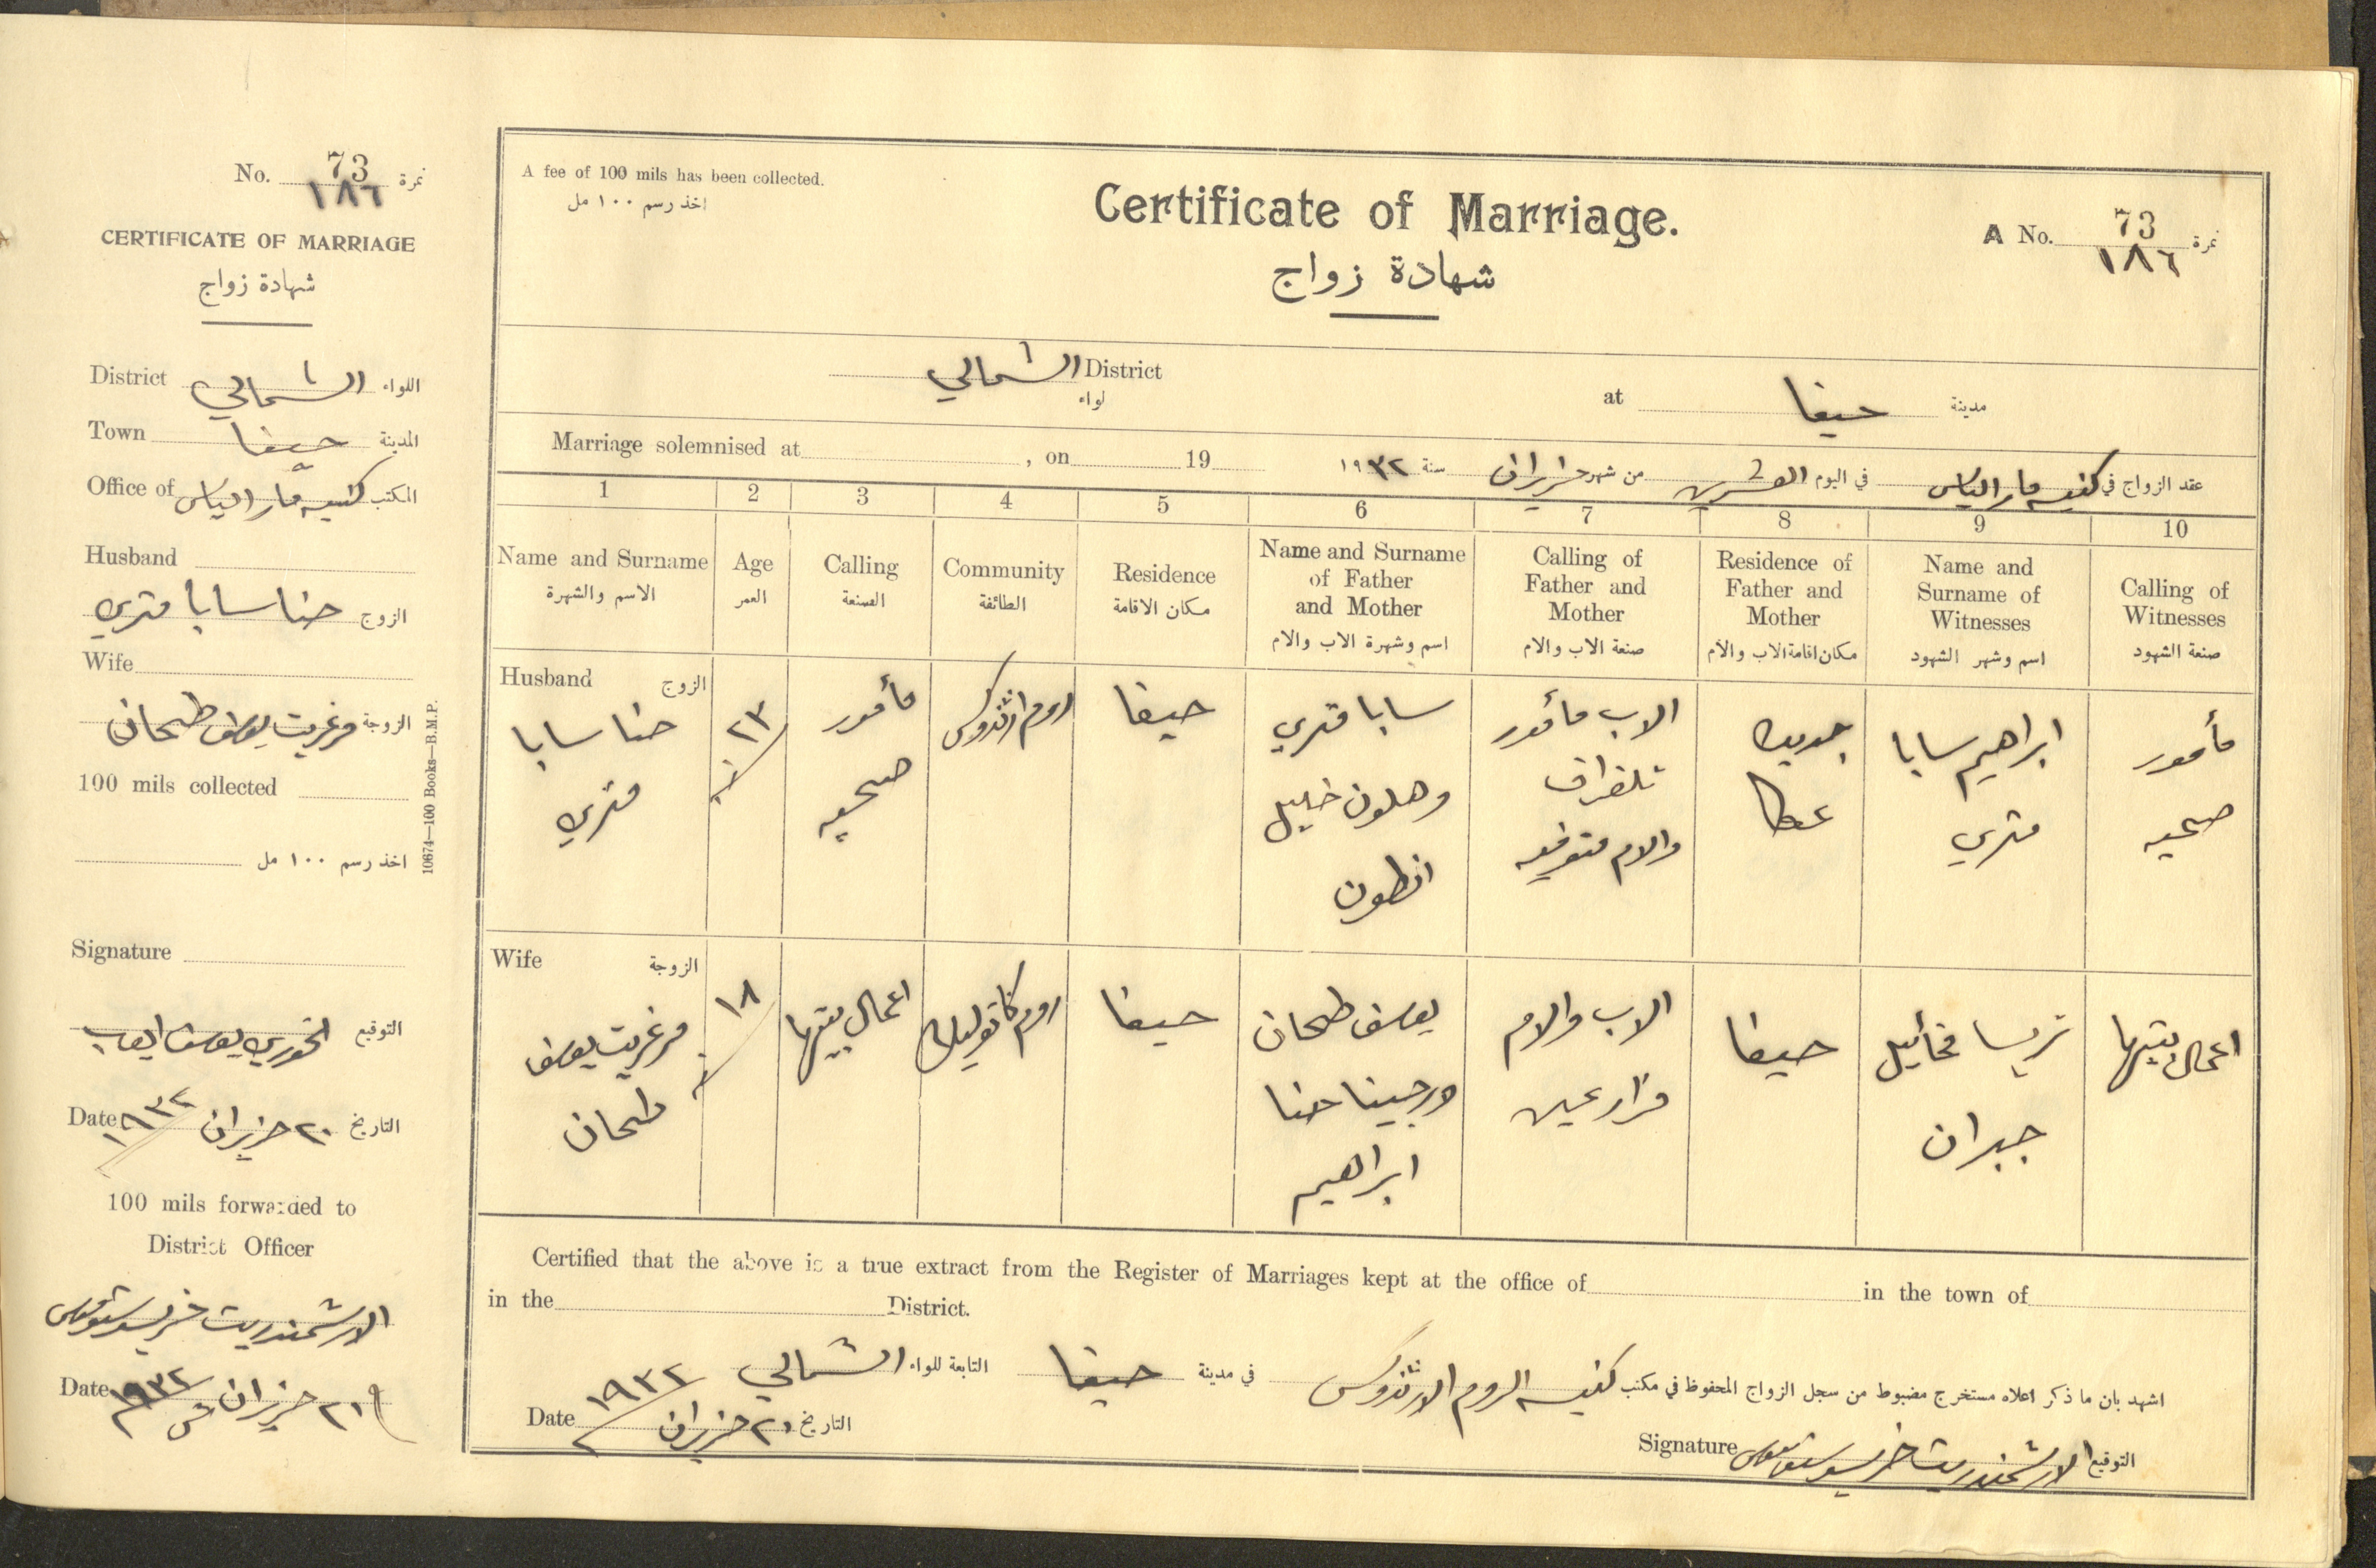 No. 73 نمرة
١٨٦
CERTIFICATE OF MARRIAGE
شهادة زواج
District الشمالي اللواء
Town حيفا المدينة
Office of كنيسة مار الياس المكتب
Husband
الزوج حنا سابا متري
Wife
الزوجة مرغريت يوسف طحان
100 mils collected
اخذ رسم ١٠٠ مل
Signature
التوقيع الخوري يوسف
Date ٢٠ حزيران ١٩٣٢ التاريخ
100 mils forwarded to
District Officer
الارشمندريت
Date ٢١ حزيران ١٩٣٢
10674—100 Books—B.M.P.
A fee of 100 mils has been collected.
اخذ رسم ١٠٠ مل
Certificate of Marriage.
شهادة زواج
A No. 73 نمرة
١٨٦
الشمالي District
لواء
at حيفا مدينة
Marriage solemnised at , on 19
عقد الزواج في كنيسة مار الياس في اليوم العشرين من شهر حزيران سنة ١٩٣٢
1 2 3 4 5 6 7 8 9 10
Name and Surname
الاسم والشهرة
Age
العمر
Calling
الصنعة
Community
الطائفة
Residence
مكان الاقامة
Name and Surname
of Father
and Mother
اسم وشهرة الاب والام
Calling of
Father and
Mother
صنعة الاب والام
Residence of
Father and
Mother
مكان اقامة الاب والام
Name and
Surname of
Witnesses
اسم وشهر الشهود
Calling of
Witnesses
صنعة الشهود
Husband الزوج
حنا سابا
متري
٢٣
مأمور
صحيه
روم ارثذوكس
حيفا
سابا متري
وهلون خليل
انطون
الاب مأمور
تلغراف
والام متوفيه
عطا
ابراهيم سابا
متري
مأمور
صحيه
Wife الزوجة
مرغريت يوسف
طحان
١٨
اعمال بيتها
روم كاثوليك
حيفا
يوسف طحان
ورجينا حنا
ابراهيم
الاب والام
مزارعين
حيفا
تريسا مخائيل
جبران
اعمال بيتها
Certified that the above is a true extract from the Register of Marriages kept at the office of in the town of
in the District.
اشهد بان ما ذكر اعلاه مستخرج مضبوط من سجل الزواج المحفوظ في مكتب كنيسة الروم الارثذوكس في مدينة حيفا التابعة للواء الشمالي
Date ٢٠ حزيران ١٩٣٢ التاريخ
Signature الارشمندريت التوقيع